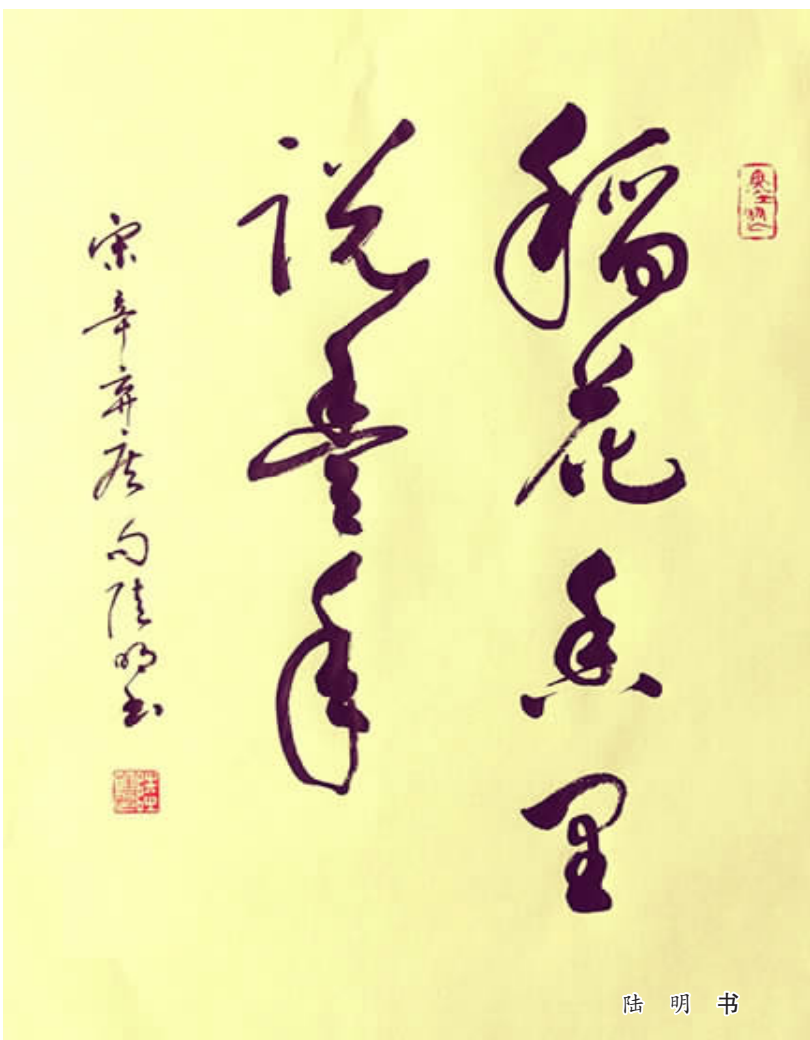 稻花香里
説豊年
宋辛弃疾句陆明书
陆明书